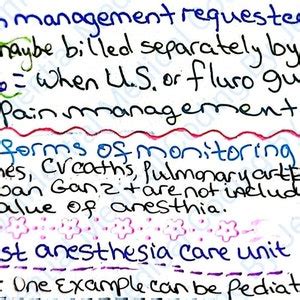 management requested
maybe billed separately by
= when U.S. or fluro gu
Pain management
forms of monitoring
nes, CVcaths, Pulmonary art
an Ganz + are not includ
alue of anesthia.
st anesthesia care unit
: One Example can be Pediat